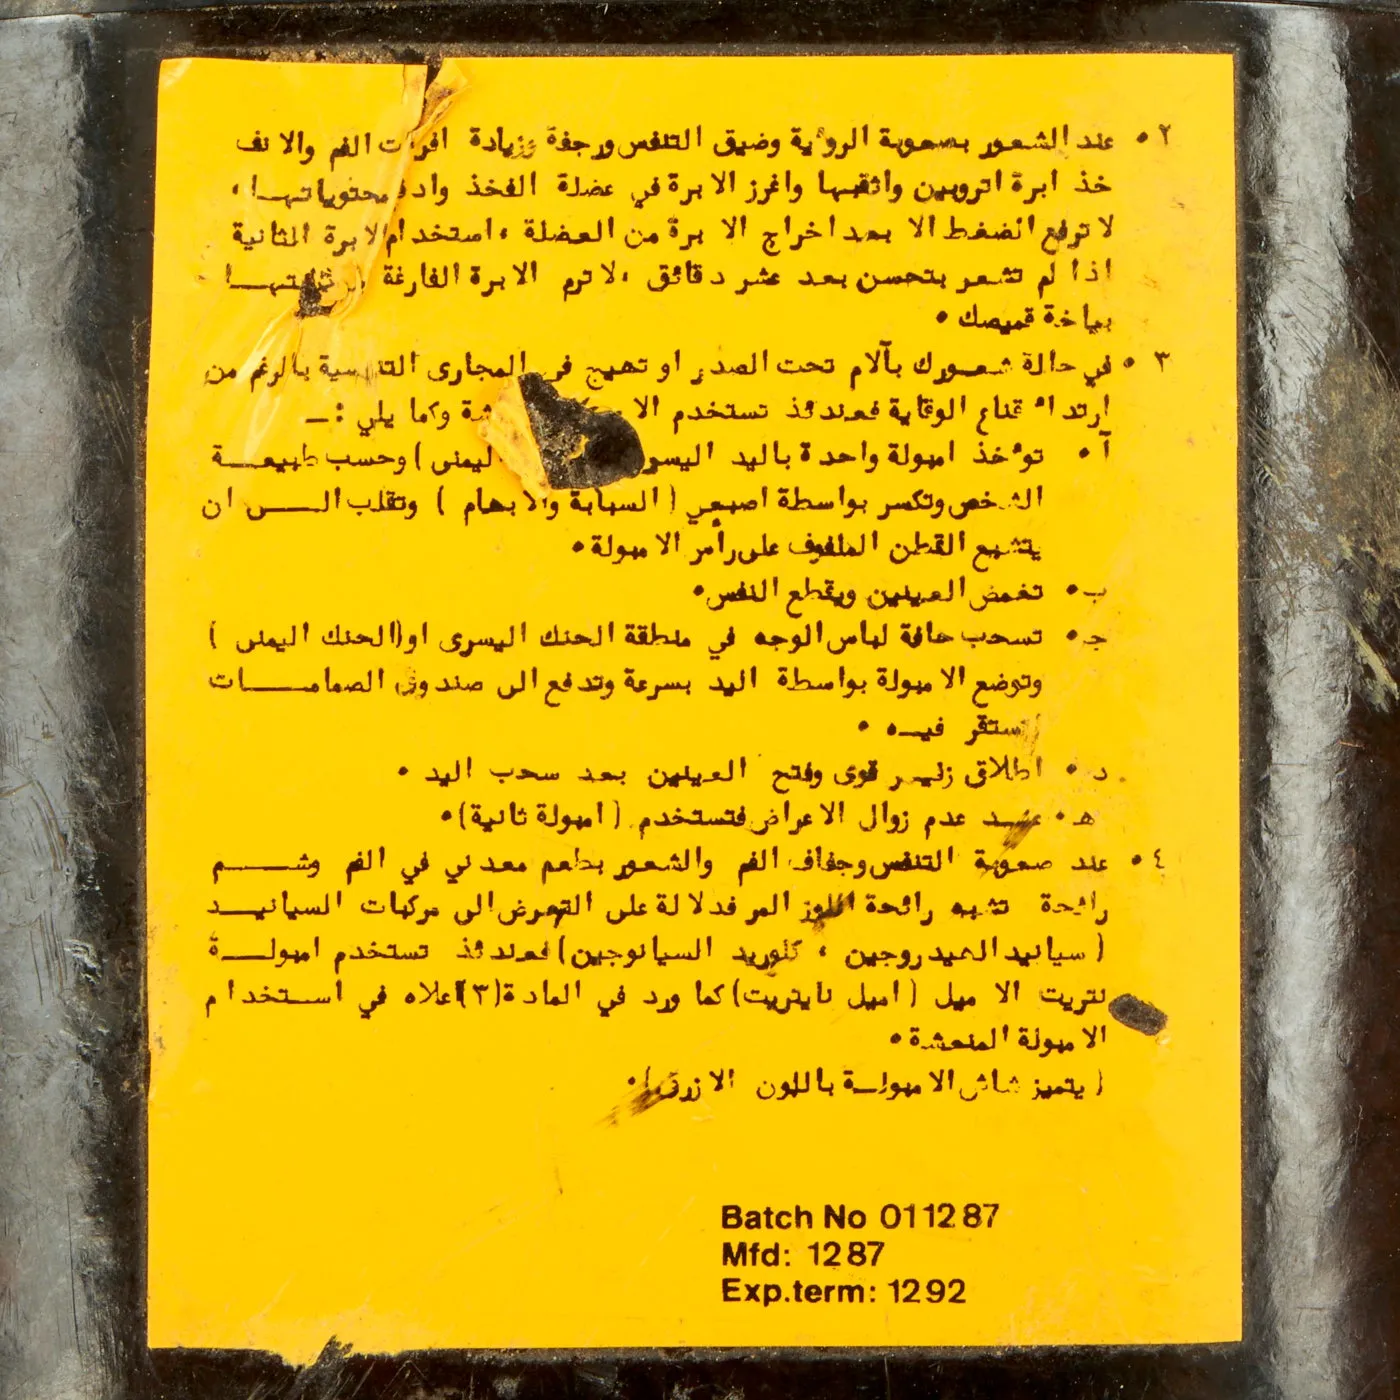 ٢ • عند الشعور بصعوبة الرؤية وضيق التنفس ورجفة وزيادة افرازات الفم والانف
خذ ابرة اتروبين واثقبها واغرز الابرة في عضلة الفخذ وادفع محتوياتها ،
لا ترفع الضغط الا بعد اخراج الابرة من العضلة ، استخدام الابرة الثانية
اذا لم تشعر بتحسن بعد عشر دقائق ، لا ترم الابرة الفارغة
بياخة قميصك •
٣ • في حالة شعورك بآلام تحت الصدر او تهيج في المجارى التنفسية بالرغم من
ارتداء قناع الوقاية فعندئذ تستخدم وكما يلي :ـ
آ • تؤخذ امبولة واحدة باليد اليسرى اليمنى ) وحسب طبيعـــة
الشخص وتكسر بواسطة اصبعي ( السبابة والابهام ) وتقلب الـــى ان
يتشبع القطن الملفوف على رأس الامبولة •
ب • تغمض العينين ويقطع النفس •
جـ • تسحب حافة لباس الوجه في منطقة الحنك اليسرى او (الحنك اليمنى )
وتوضع الامبولة بواسطة اليد بسرعة وتدفع الى صندوق الصمامـــات
لتستقر فيــه •
د • اطلاق زفيــر قوى وفتح العينين بعد سحب اليد •
هـ • عنــد عدم زوال الاعراض فتستخدم ( امبولة ثانية) •
٤ • عند صعوبة التنفس وجفاف الفم والشعور بطعم معدني في الفم وشـــم
رائحة تشبه رائحة اللوز المر فدلالة على التعرض الى مركبات السيانيــد
( سيانيد الهيدروجين ، كلوريد السيانوجين) فعندئذ تستخدم امبولـــة
نتريت الاميل ( اميل نايتريت) كما ورد في المادة (٣) اعلاه في استخدام
الامبولة المنعشة •
( يتميز شاش الامبولــة باللون الازرق ) •
Batch No 011287
Mfd: 1287
Exp.term: 1292